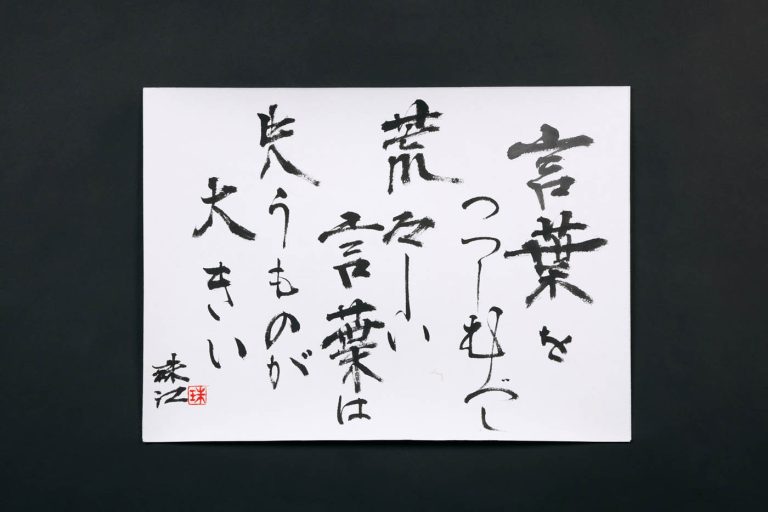 言葉を
つつしむべし
荒々しい
言葉は
失うものが
大きい
珠江
珠